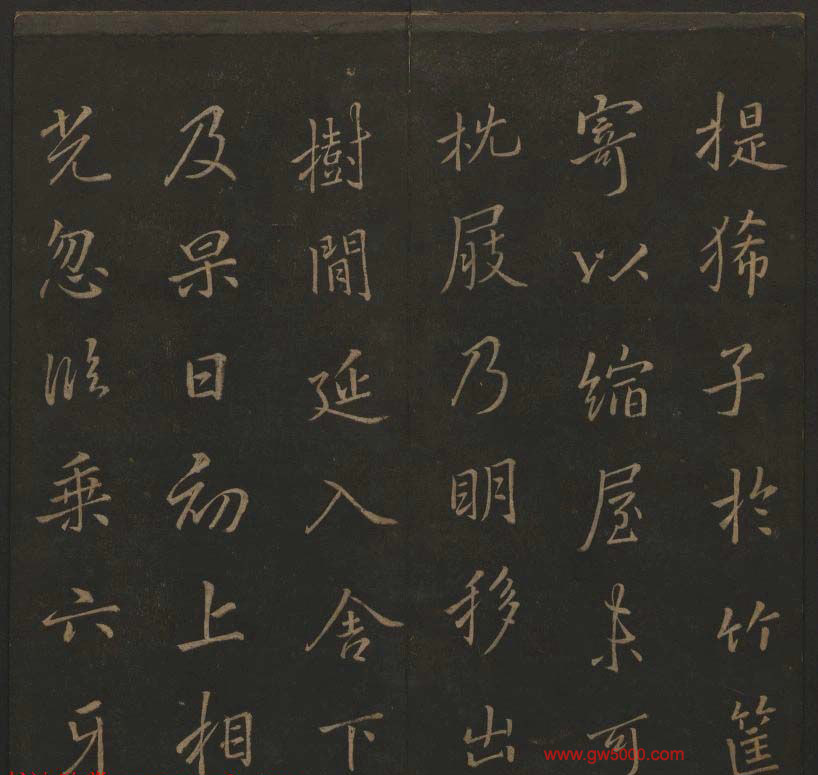 提狶子於竹筐
寄以缩屋未可
枕屐乃明移出
樹間延入舍下
及杲日初上相
光忽臨乗六牙
www.gw5000.com